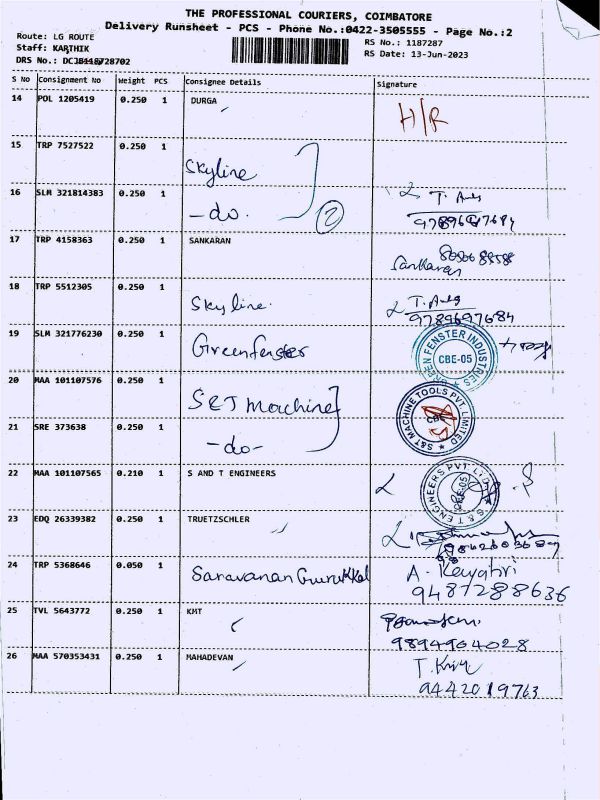 THE PROFESSIONAL COURIERS, COIMBATORE
Delivery Runsheet - PCS - Phone No.:0422-3505555 - Page No.:2
Route: LG ROUTE
Staff: KARTHIK
RS No.: 1187287
RS Date: 13-Jun-2023
S No Consignment No Weight PCS Consignee Details Signature
14 POL 1205419 0.250 1 DURGA H/R
15 TRP 7527522 0.250 1 Skyline
16 SLM 321814383 0.250 1 -do. 2 T.
17 TRP 4158363 0.250 1 SANKARAN Sankaran
18 TRP 5512305 0.250 1 Skyline. T. 9789697684
19 SLM 321776230 0.250 1 Greenfenster GREEN FENSTER INDUSTRIES CBE-05
20 MAA 101107576 0.250 1 S&T Machine S&T MACHINE TOOLS PVT. LIMITED CBE
21 SRE 373638 0.250 1 -do-
22 MAA 101107565 0.210 1 S AND T ENGINEERS S & T ENGINEERS PVT. LTD
23 EDQ 26339382 0.250 1 TRUETZSCHLER
24 TRP 5368646 0.050 1 Saravanan Gurukkal A. 9487288636
25 TVL 5643772 0.250 1 KMT 9894964028
26 MAA 570353431 0.250 1 MAHADEVAN T. 9442019763